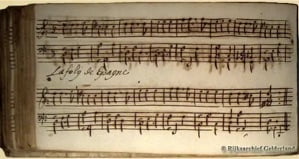 La foly de Spagne
© Rijksarchief Gelderland